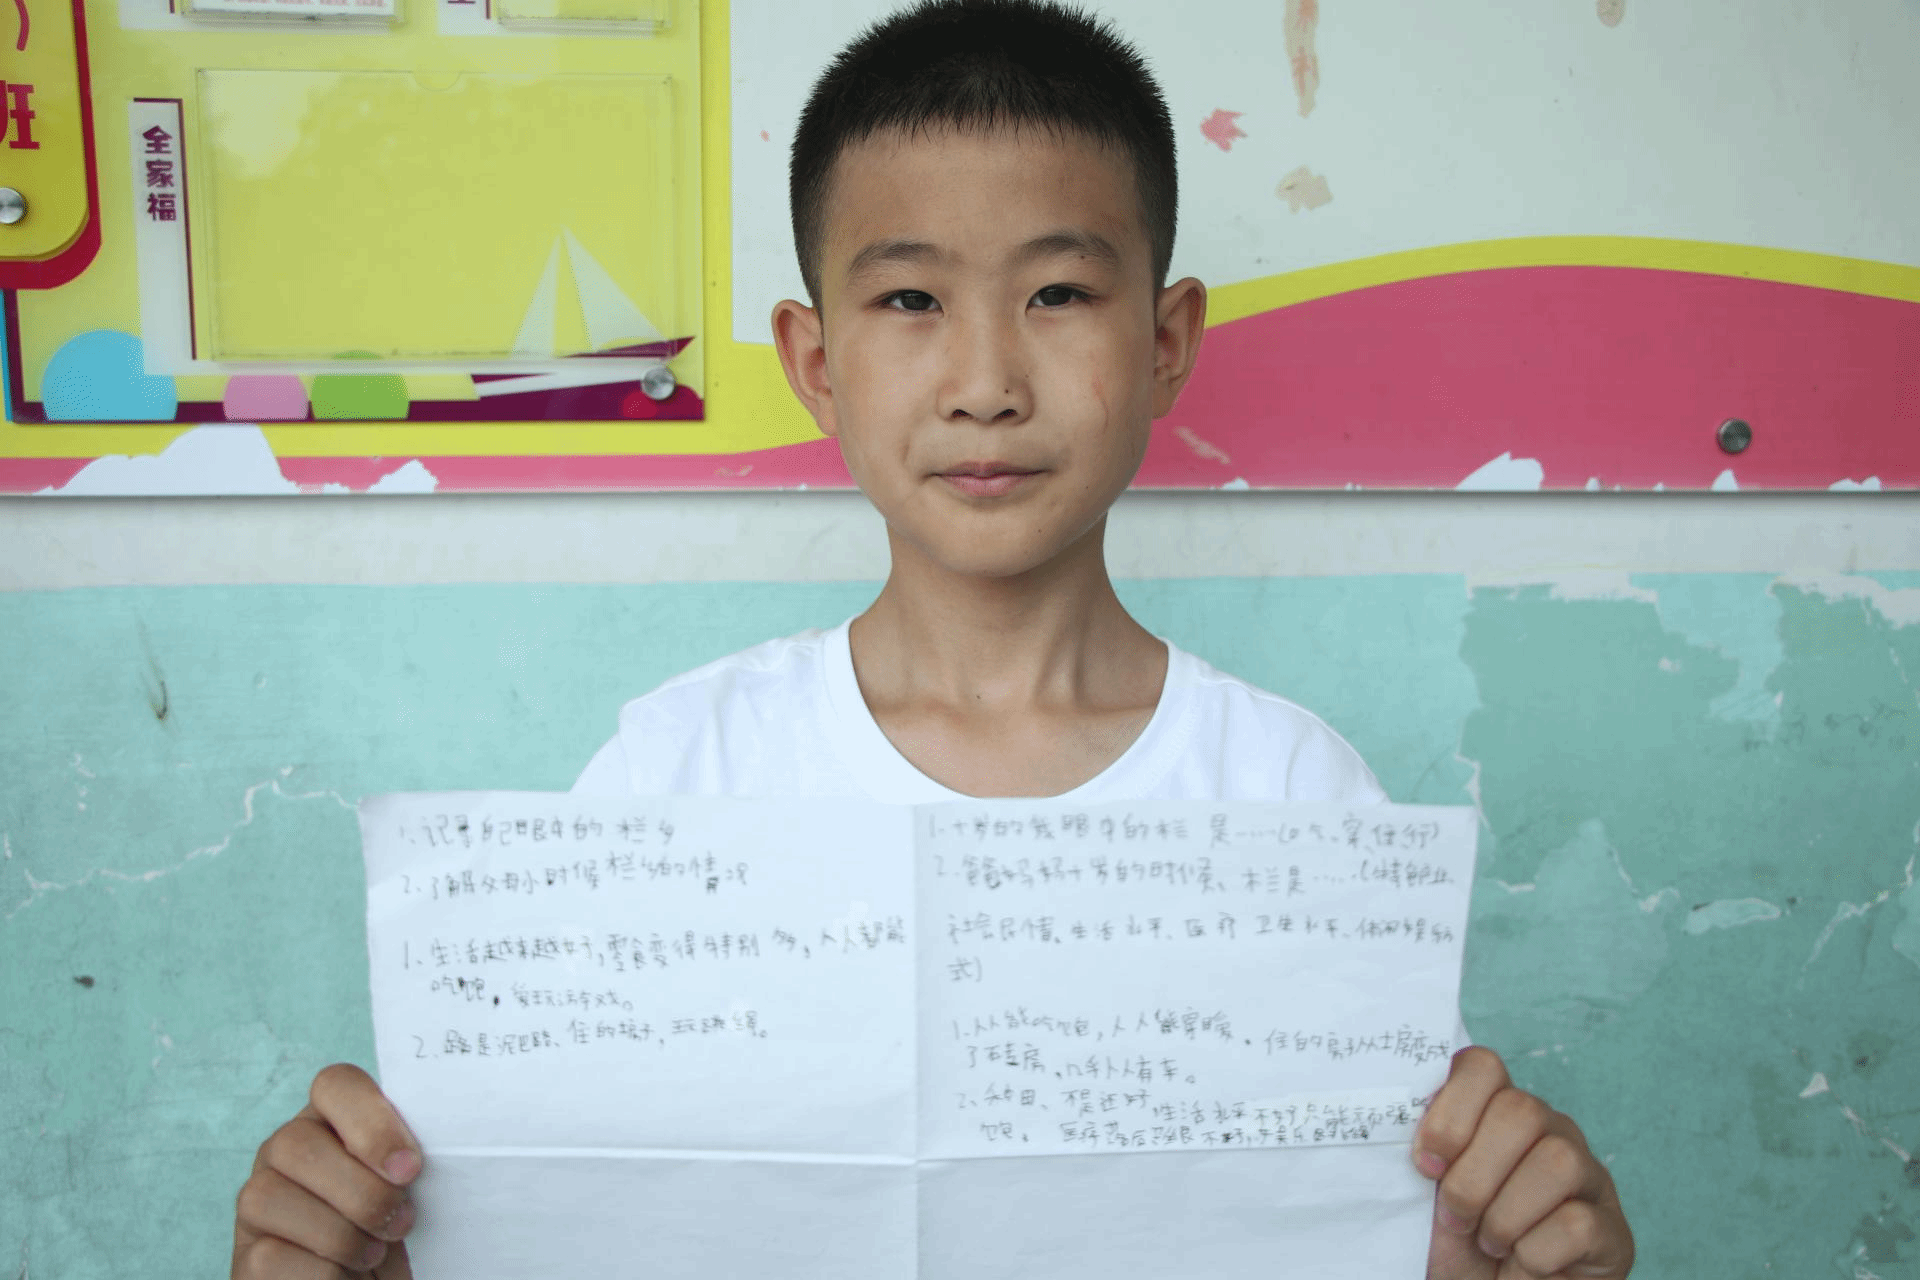 班
全家福
1、记录自己眼中的栏乡
2、了解父母小时候栏乡的情况
1、生活越来越好,零食变得特别多,人人都能
吃饱,爱玩游戏。
2、路是泥巴路、住的房子,玩跳绳。
1、十岁的我眼中的栏是……(吃、穿、住行)
2、爸爸妈妈十岁的时候、栏是……(特色产业、
社会民情、生活水平、医疗卫生水平、休闲娱乐方
式)
1、人人能吃饱,人人能穿暖。住的房子从土房变成
了砖房,几乎人人有车。
2、种田、不是还好,生活水平不好只能顽强吃
饱。医疗落后